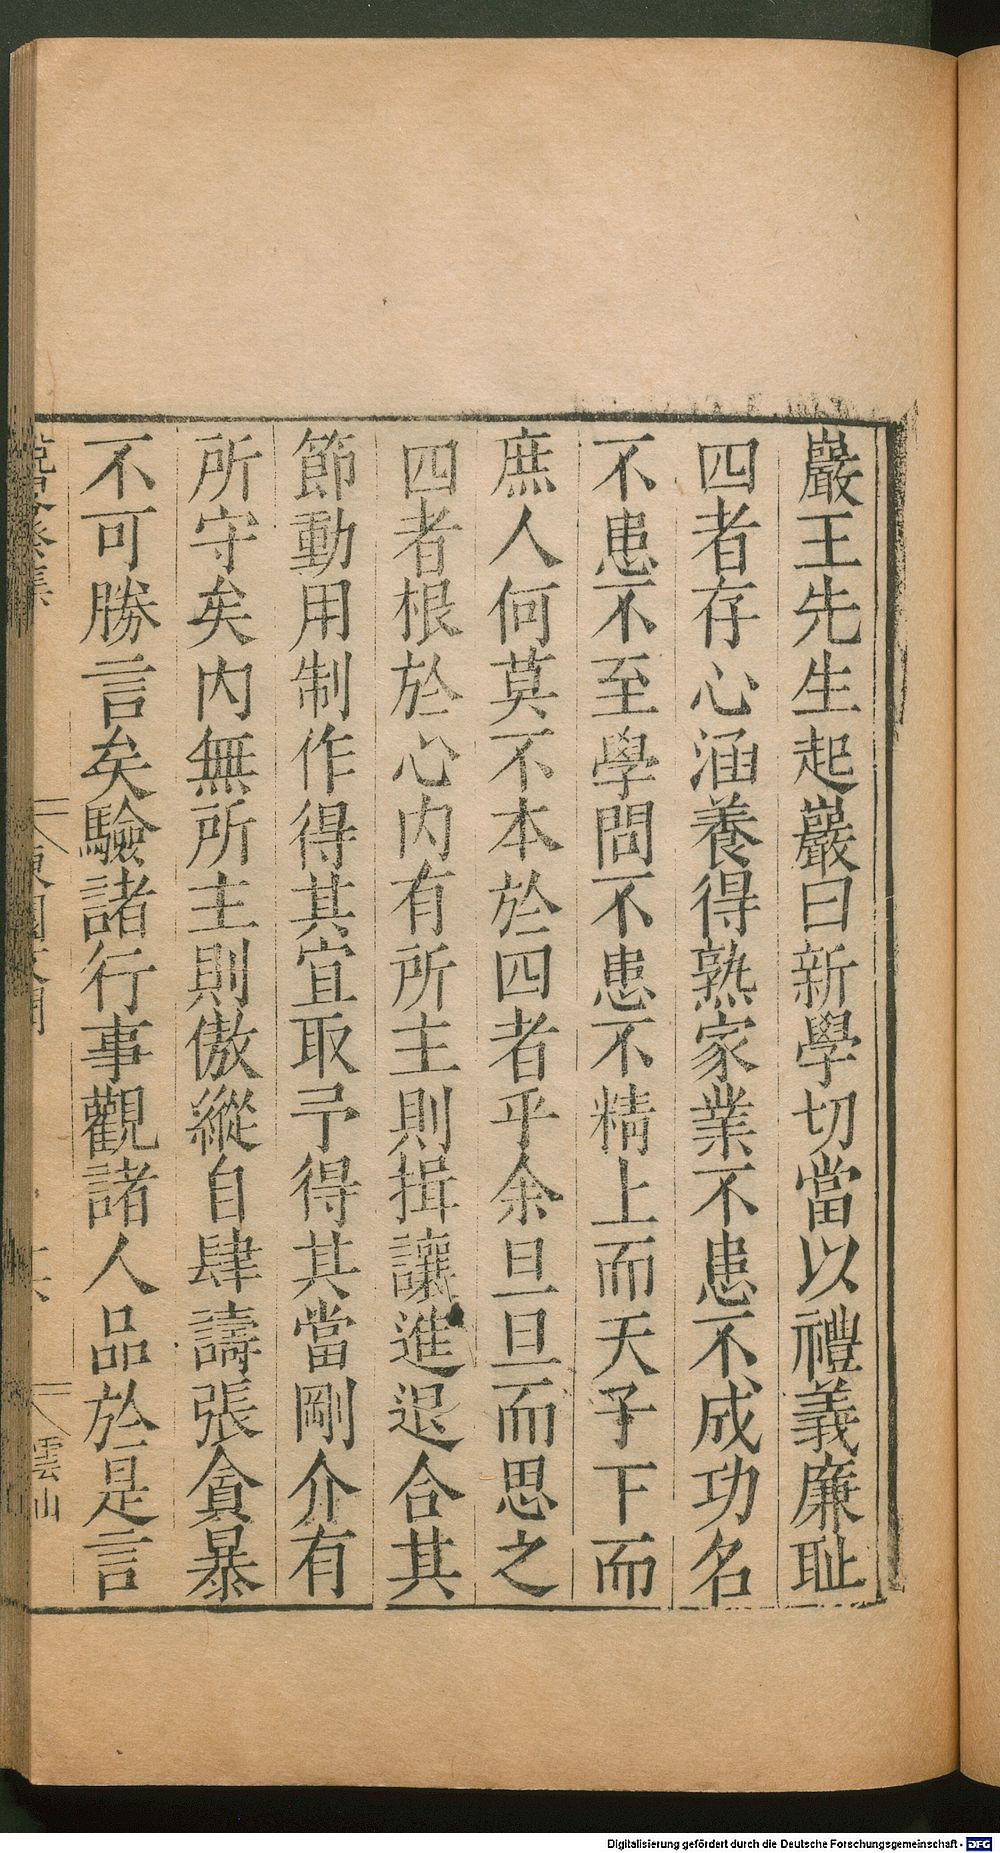 巖王先生起巖曰新學切當以禮義廉耻
四者存心涵養得熟家業不患不成功名
不患不至學問不患不精上而天子下而
庶人何莫不本於四者乎余旦旦而思之
四者根於心内有所主則揖讓進退合其
節動用制作得其宜取予得其當剛介有
所守矣内無所主則傲縱自肆譸張貪暴
不可勝言矣驗諸行事觀諸人品於是言
雲山
Digitalisierung gefördert durch die Deutsche Forschungsgemeinschaft - DFG